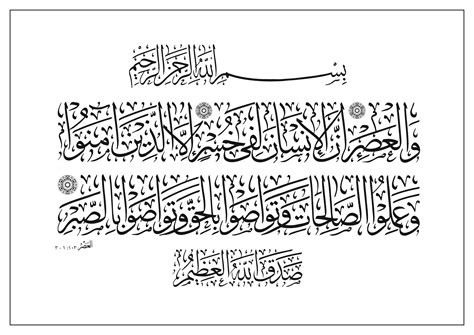 بِسْمِ اللَّهِ الرَّحْمَنِ الرَّحِيمِ
وَالْعَصْرِ إِنَّ الْإِنْسَانَ لَفِي خُسْرٍ إِلَّا الَّذِينَ آمَنُوا
وَعَمِلُوا الصَّالِحَاتِ وَتَوَاصَوْا بِالْحَقِّ وَتَوَاصَوْا بِالصَّبْرِ
العصر ١٠٣ / ١ - ٣
صَدَقَ اللَّهُ الْعَظِيمُ